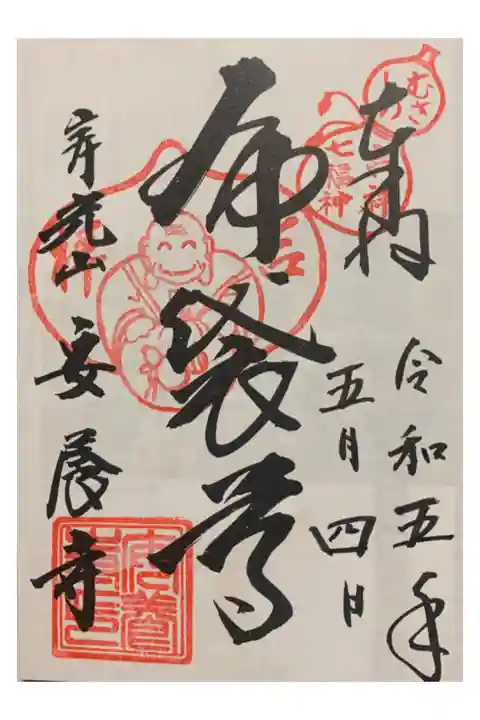 奉拝
令和五年
五月四日
布袋尊
山 安養寺
むさしの
七福神